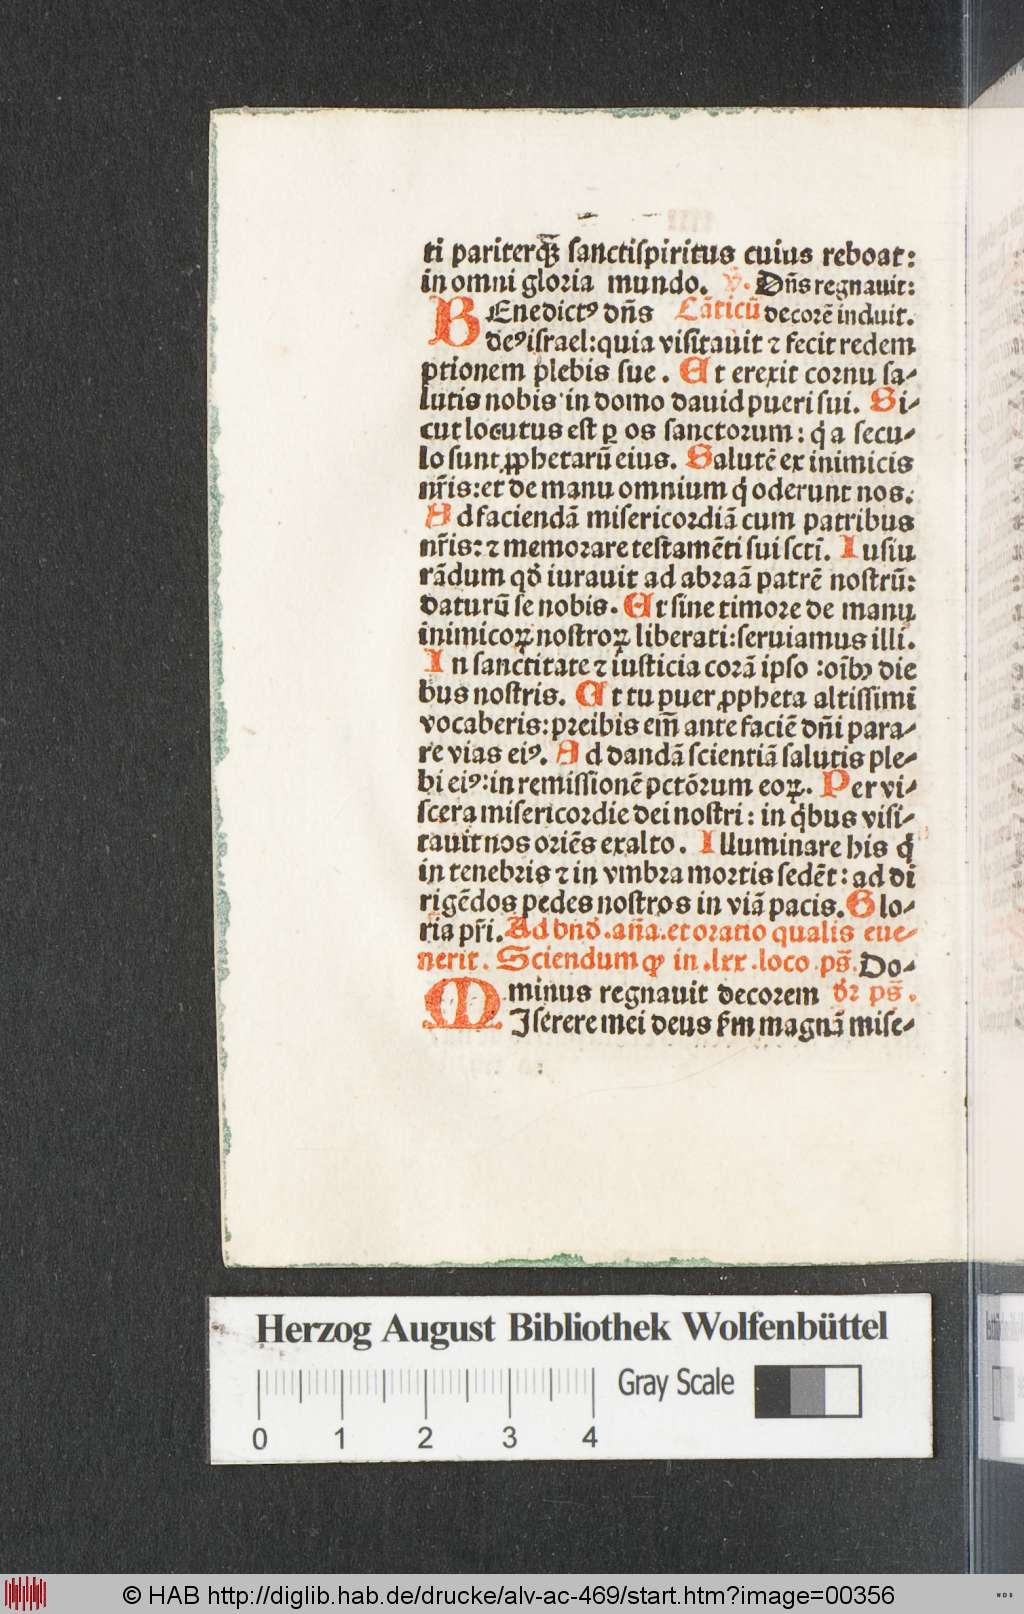 ti pariterqꝫ sanctispiritus cuius reboat:
in omni gloria mundo. ℣. Dn̄s regnauit:
BEnedictꝰ dn̄s Cāticū decorē induit.
deꝰ israel: quia visitauit ⁊ fecit redem
ptionem plebis sue. Et erexit cornu sa⸗
lutis nobis in domo dauid pueri sui. Si⸗
cut locutus est ꝑ os sanctorum: q̄ a secu⸗
lo sunt ꝓphetarū eius. Salutē ex inimicis
nr̄is: et de manu omnium q̄ oderunt nos.
Ad faciendā misericordiā cum patribus
nr̄is: ⁊ memorare testamēti sui sctī. Iusiu
rādum qđ iurauit ad abraā patrē nostrū:
daturū se nobis. Et sine timore de manu
inimicoꝝ nostroꝝ liberati: seruiamus illi.
In sanctitate ⁊ iusticia corā ipso: oībꝫ die
bus nostris. Et tu puer ꝓpheta altissimi
vocaberis: preibis em̄ ante faciē dn̄i para⸗
re vias eiꝰ. Ad dandā scientiā salutis ple⸗
bi eiꝰ: in remissionē pctōrum eoꝝ. Per vi⸗
scera misericordie dei nostri: in q̄bus visi⸗
tauit nos oriēs exalto. Illuminare his q̄
in tenebris ⁊ in vmbra mortis sedēt: ad di
rigēdos pedes nostros in viā pacis. Glo⸗
ria pr̄i. Ad bn̄d̄. an̄a. et oratio qualis eue⸗
nerit. Sciendum ꝙ in .lxx. loco ps̄. Do⸗
minus regnauit decorem dr̄ ps̄.
MIserere mei deus s̄m magnā mise⸗
Herzog August Bibliothek Wolfenbüttel
Gray Scale
0 1 2 3 4
© HAB http://diglib.hab.de/drucke/alv-ac-469/start.htm?image=00356